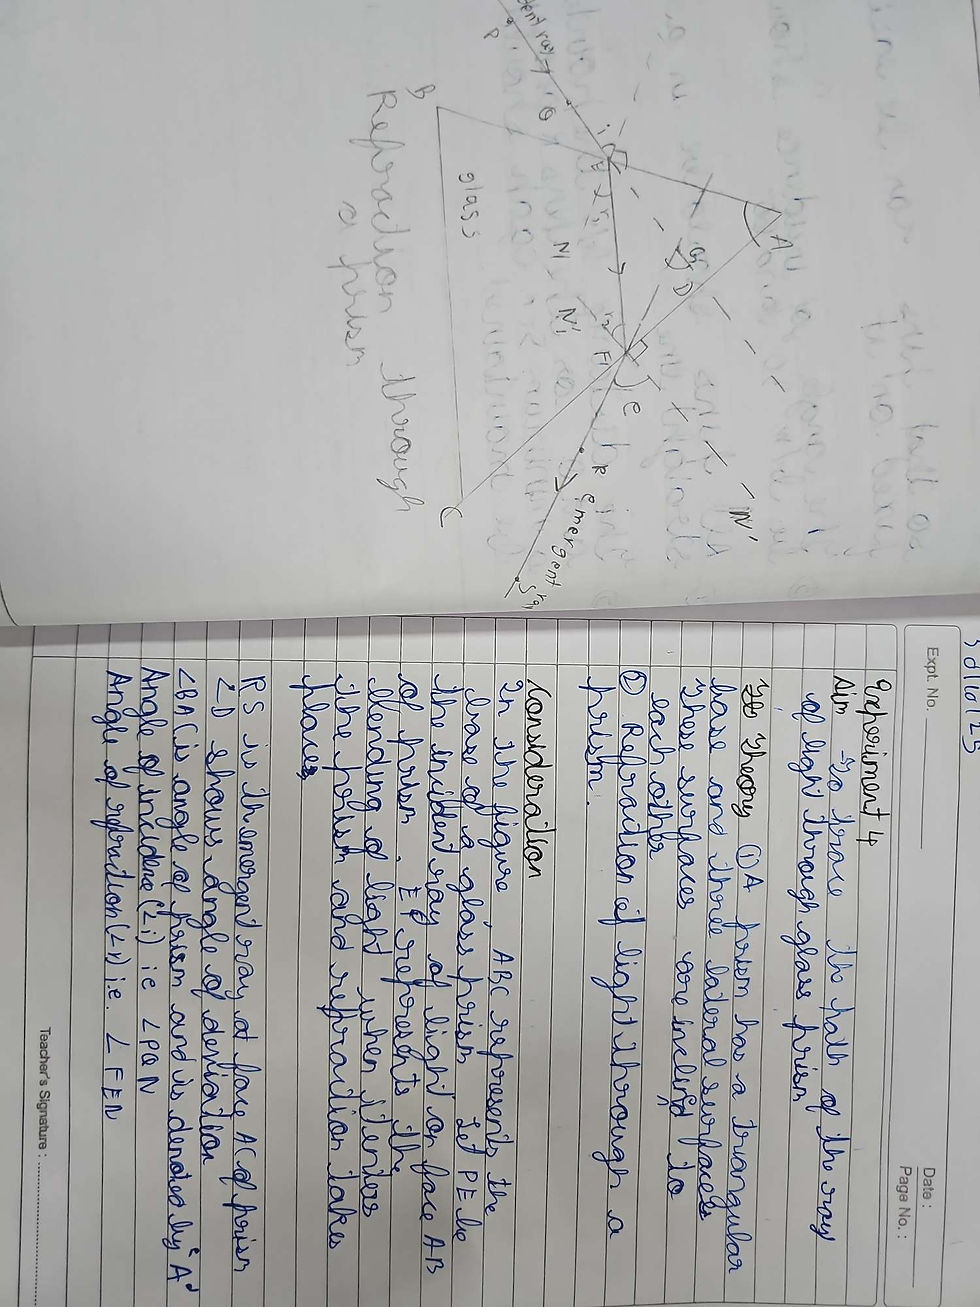 Refraction through
a prism
A
B
C
D
E
F
P
Q
R
S
N'
N'
N
i
e
glass
emergent ray
Expt. No.
Date :
Page No. :
Experiment 4
Aim To trace the path of the ray
of light through glass prism
Theory ① A prism has a triangular
base and three lateral surfaces
These surfaces are inclined to
each other
② Refraction of light through a
prism.
Consideration
In the figure, ABC represents the
base of a glass prism Let PE be
the incident ray of light on face AB
of prism. EF represents the
bending of light when it enters
the prism and refraction takes
place,
RS is the emergent ray at face AC of prism
∠D shows angle of deviation
∠BAC is angle of prism and is denoted by 'A'
Angle of incidence (∠i) ie ∠PQN
Angle of refraction (∠r) i.e. ∠FEN
Teacher's Signature :